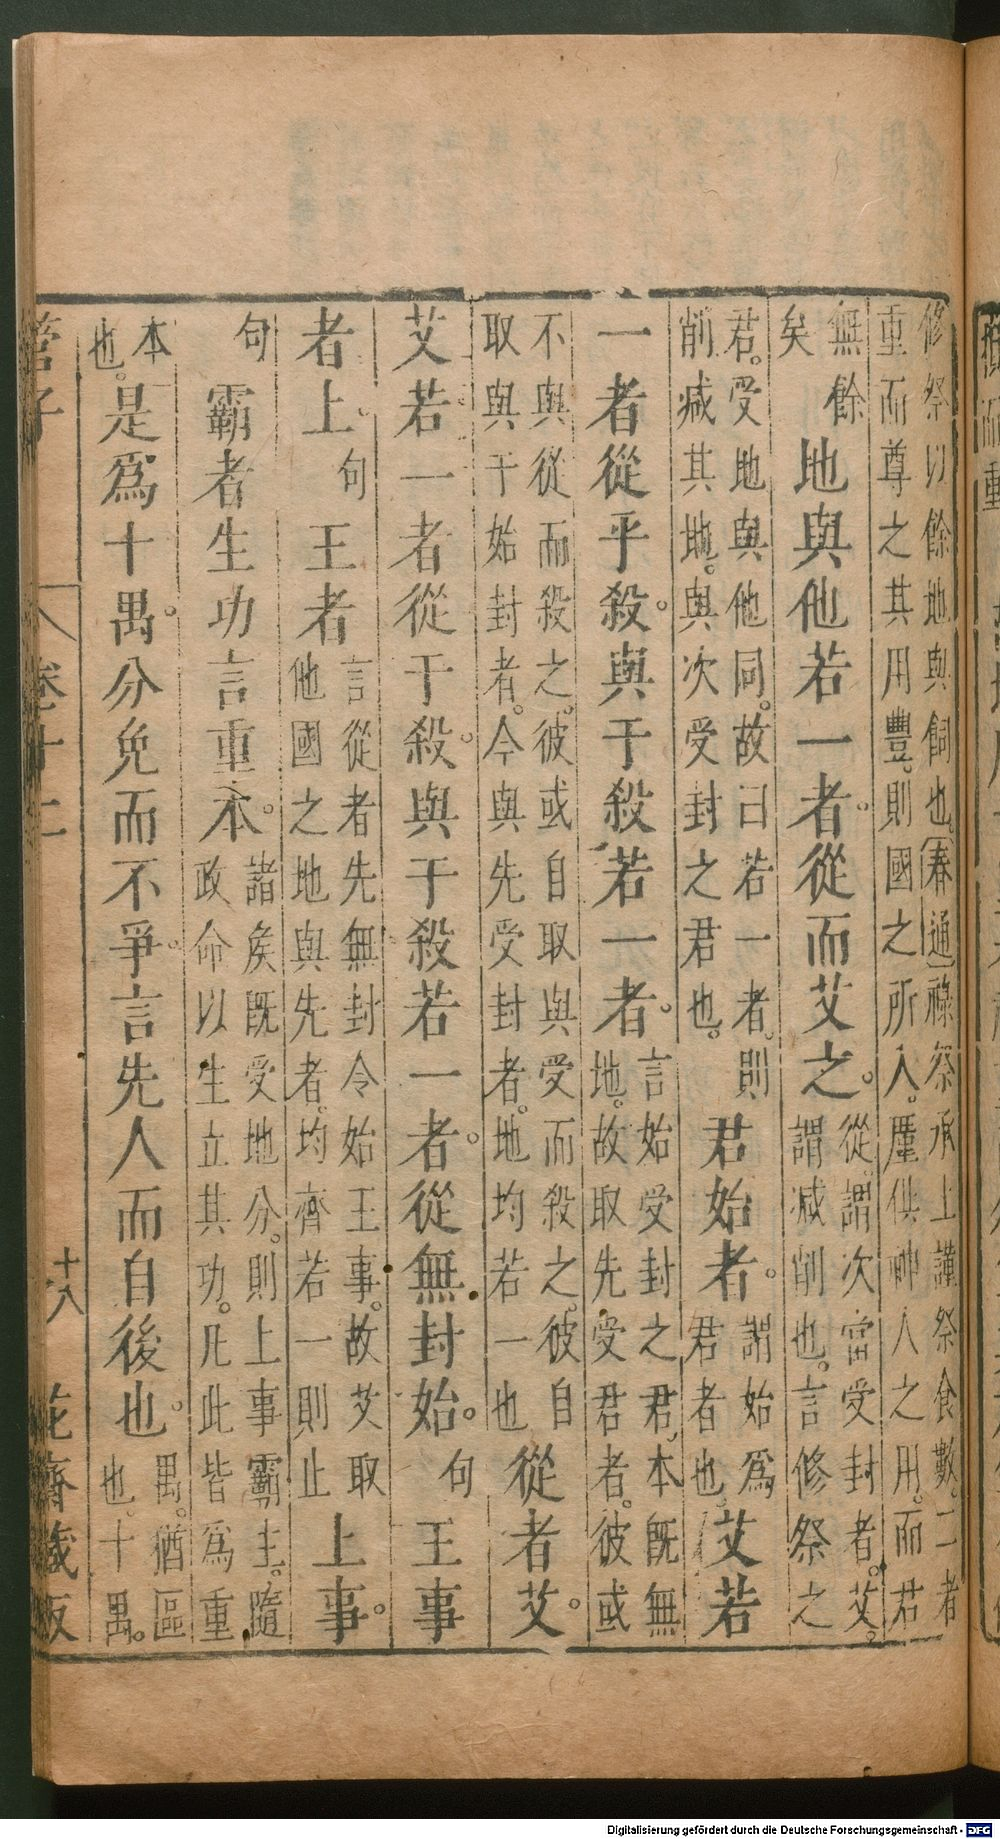 修祭以餘地與飼也。春通祿祭承上謹祭食數。二者
重而尊之其用豐。則國之所入。厪供神人之用。而君
無餘
矣
地與他若一者。從而艾之。
從。謂次當受封者。艾。
謂减削也。言修祭之
君。受地與他同。故曰若一者。則
削减其地。與次受封之君也。
君始者。
謂始爲
君者也。
艾若
一者從乎殺。與于殺若一者。
言始受封之君。本旣無
地。故取先受君者。彼或
不與從而殺之。彼或自取與受而殺之。彼自
取與干始封者。今與先受封者。地均若一也
從者艾。
艾若。一者從于殺。與于殺若一者。從無封始。
句
王事
者上。
句
王者
言從者先無封今始王事。故艾取
他國之地與先者。均齊若一則止
上事。
句
霸者生功言重本。
諸矦旣受地分。則上事霸主。隨
政命以生立其功。凡此皆爲重
本
也。
是爲十禺。分免而不爭。言先人而自後也。
禺。猶區
也。十禺。
管子
卷十二
十八
花齋藏板
Digitalisierung gefördert durch die Deutsche Forschungsgemeinschaft - DFG